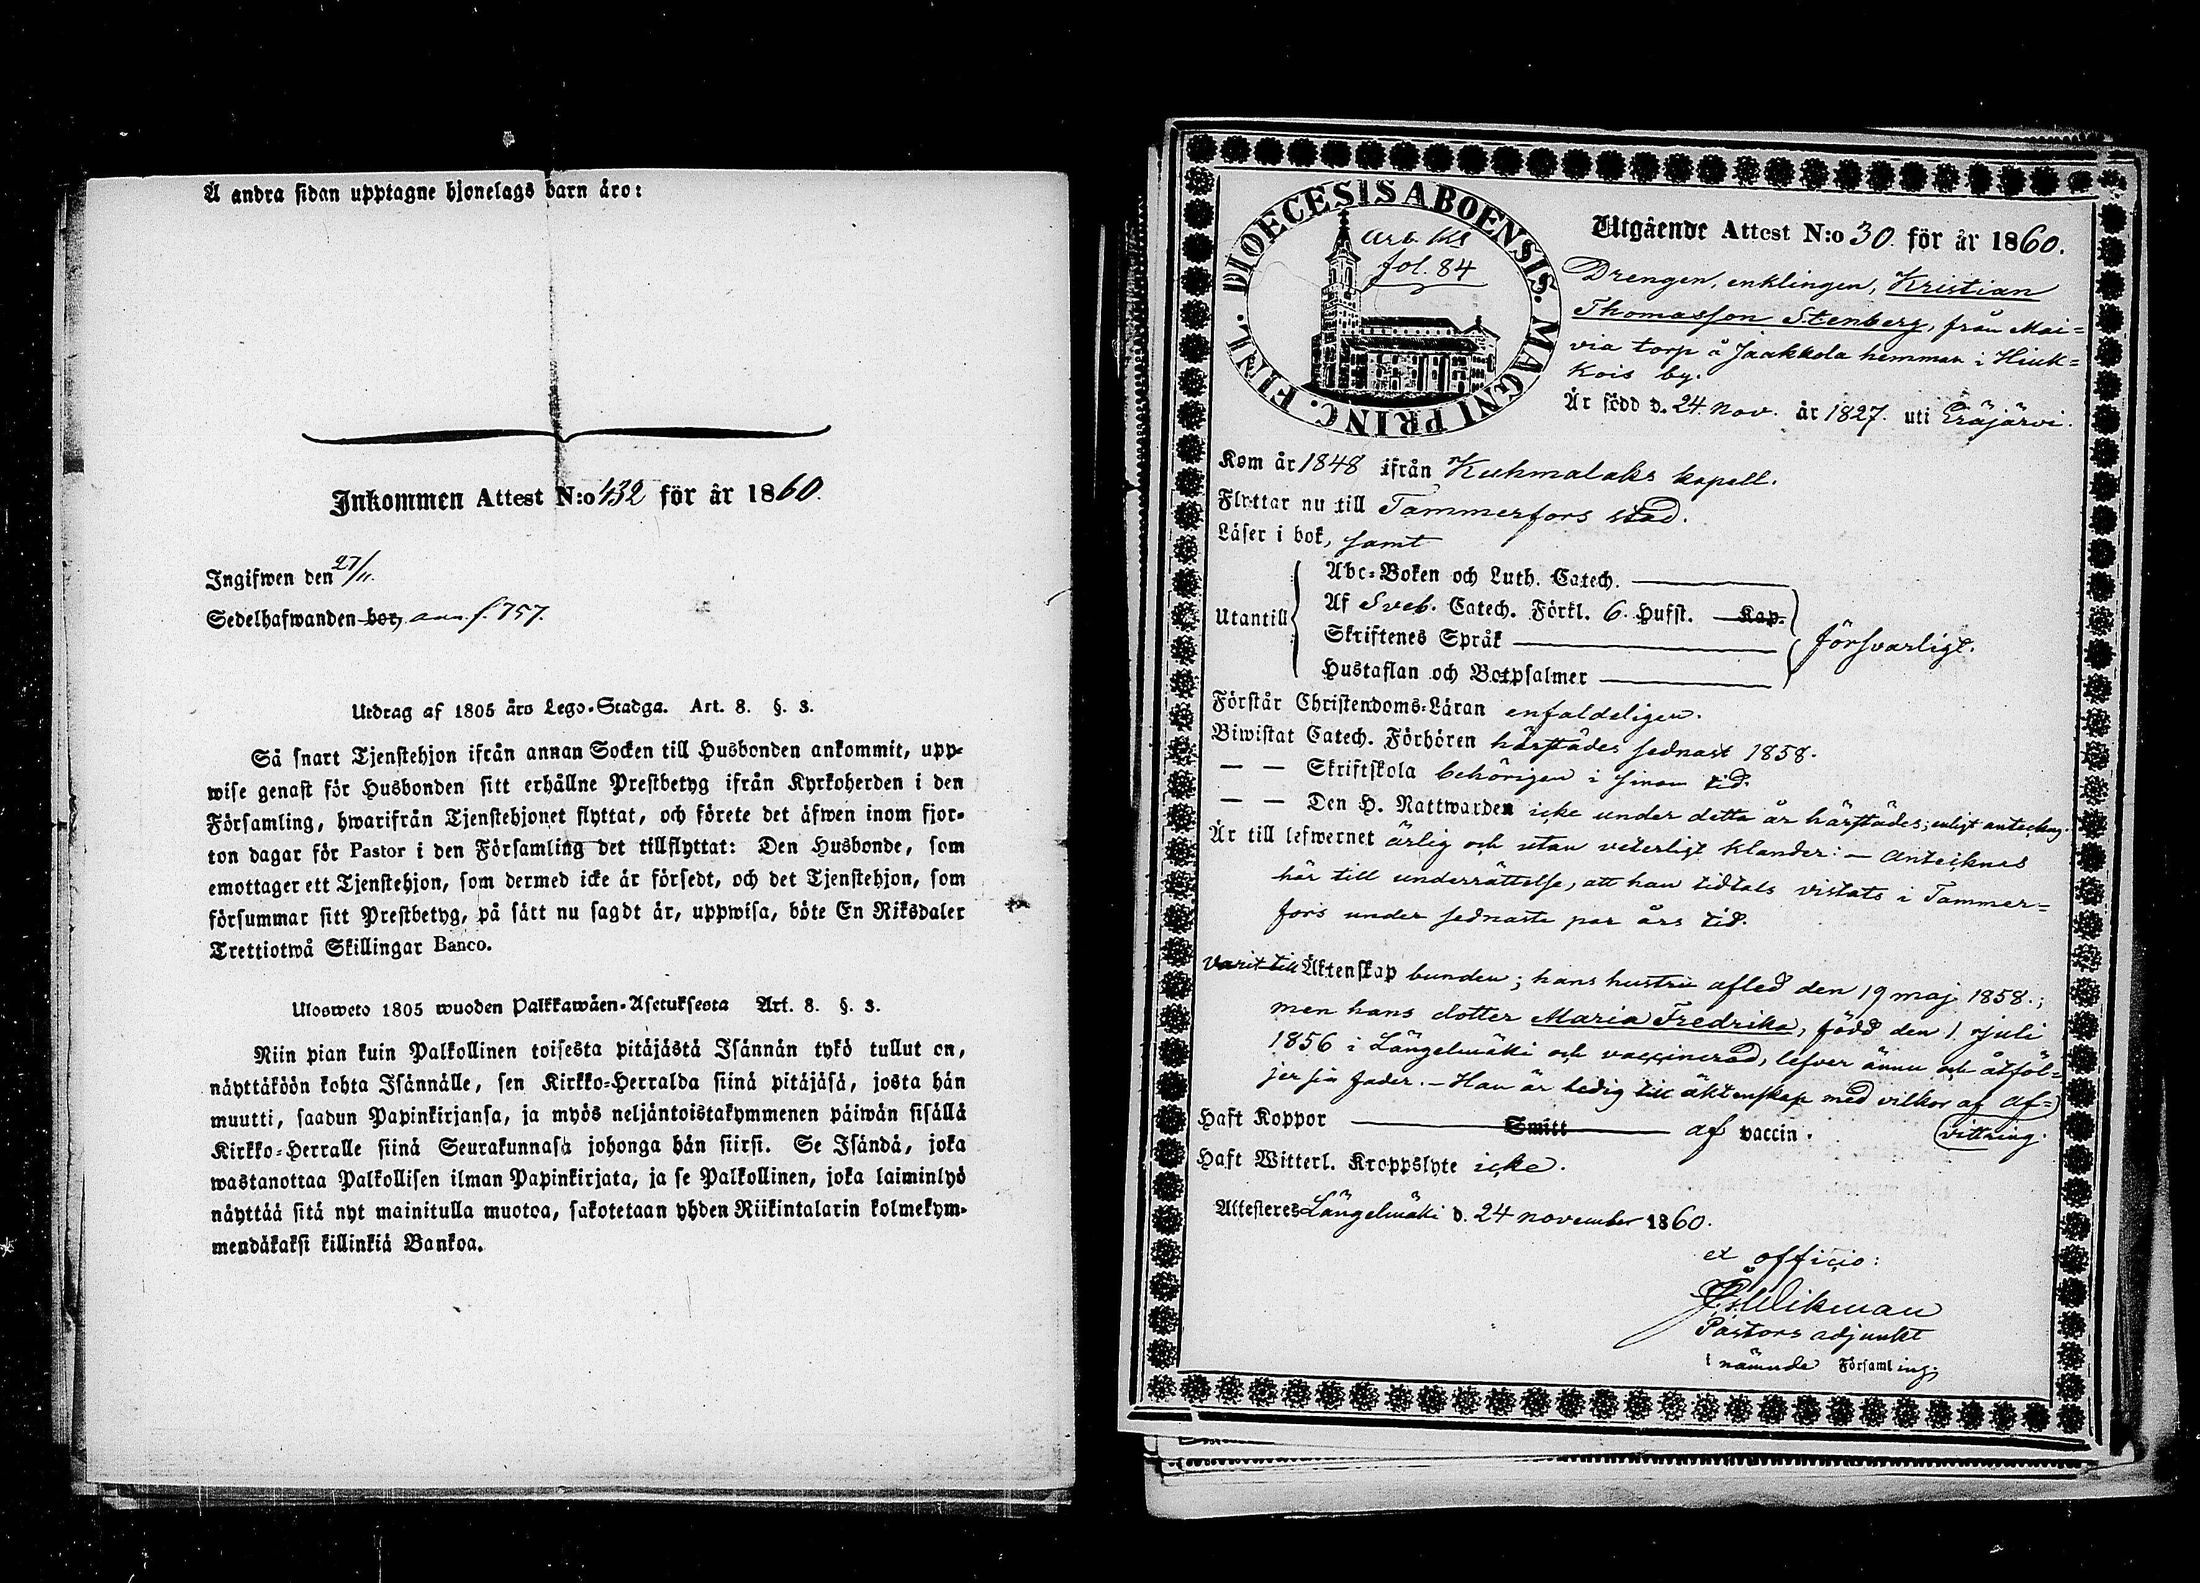 Å andra sidan upptagne hjonelags barn äro:
Inkommen Attest N:o 432 för år 1860.
Ingifwen den 27/11.
Sedelhafwanden bor, ann. f. 757.
Utdrag af 1805 års Lego-Stadga. Art. 8. §. 3.
Så snart Tjenstehjon ifrån annan Socken till Husbonden ankommit, upp-
wise genast för Husbonden sitt erhållne Prestbetyg ifrån Kyrkoherden i den
Församling, hwarifrån Tjenstehjonet flyttat, och förete det äfwen inom fjor-
ton dagar för Pastor i den Församling det tillflyttat: Den Husbonde, som
emottager ett Tjenstehjon, som dermed icke är försedt, och det Tjenstehjon, som
försummar sitt Prestbetyg, på sätt nu sagdt är, uppwisa, böte En Riksdaler
Trettiotwå Skillingar Banco.
Ulosweto 1805 wuoden Palkkawäen-Asetuksesta Art. 8. §. 3.
Niin pian kuin Palkollinen toisesta pitäjästä Isännän tykö tullut on,
näyttäköön kohta Isännälle, sen Kirkko-Herralda siinä pitäjäsä, josta hän
muutti, saadun Papinkirjansa, ja myös neljäntoistakymmenen päiwän sisällä
Kirkko-Herralle siinä Seurakunnasa johonga hän siirsi. Se Isändä, joka
wastanottaa Palkollisen ilman Papinkirjata, ja se Palkollinen, joka laiminlyö
näyttää sitä nyt mainitulla muotoa, sakotetaan yhden Riikintalarin kolmekym-
mendäkaksi killinkiä Bankoa.
DIOECESIS ABOENSIS. MAGNI PRINC. FINL.
Arb. kl
fol. 84
Utgående Attest N:o 30. för år 1860.
Drengen, enklingen, Kristian
Thomasson Stenberg, från Mai-
via torp å Jaakkola hemman i Hiuk-
kois by.
Är född d. 24 Nov. år 1827. uti Eräjärvi.
Kom år 1848 ifrån Kuhmalaks kapell.
Flyttar nu till Tammerfors stad.
Läser i bok, samt
Utantill
Abc-Boken och Luth. Catech.
Af Sveb. Catech. Förkl. 6. Hufst. Kap.
Skriftenes Språk
Hustaflan och Botpsalmer
försvarligt.
Förstår Christendoms-Läran enfaldeligen.
Biwistat Catech. Förhören härstädes sednast 1858.
— — Skriftskola behörigen i sinom tid.
— — Den H. Nattwarden icke under detta år härstädes; enligt anteckng.
Är till lefwernet ärlig och utan veterligt klander: — Antecknas
här till underrättelse, att han tidtals vistats i Tammer-
fors under sednaste par års tid.
Varit till Äktenskap bunden; hans hustru afled den 19 maj 1858.;
men hans dotter Maria Fredrika, född den 1 Juli
1856 i Längelmäki och vaccinerad, lefver ännu och åtföl-
jer sin fader. — Han är ledig till äktenskap med vilkor af af-
vittring.
Haft Koppor Smitt af vaccin.
Haft Witterl. Kroppslyte icke.
Attesteres Längelmäki d. 24 november 1860.
ex officio:
Wikman
Pastors adjunkt
i nämnde Församling.